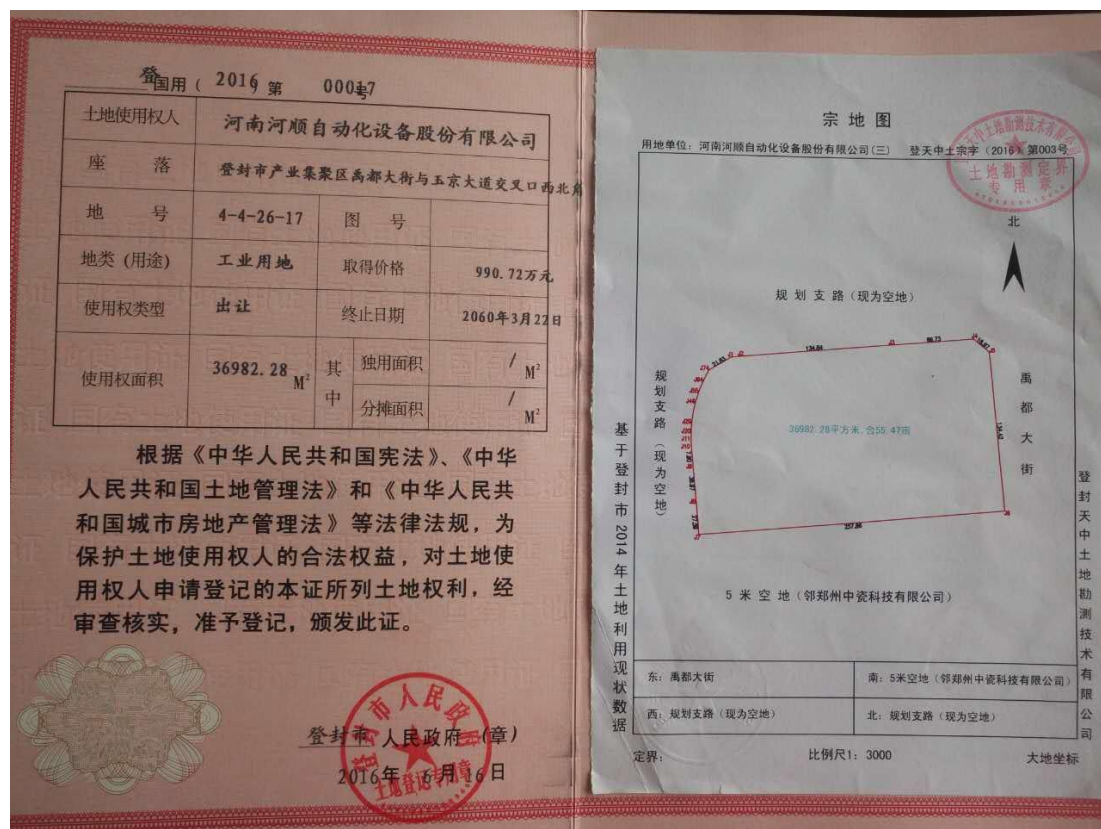 登国用(2016 第 00017号
土地使用权人 河南河顺自动化设备股份有限公司
座 落 登封市产业集聚区禹都大街与玉京大道交叉口西北角
地 号 4-4-26-17 图 号
地类(用途) 工业用地 取得价格 990.72万元
使用权类型 出让 终止日期 2060年3月22日
使用权面积 36982.28 M² 其中 独用面积 / M²
分摊面积 / M²
根据《中华人民共和国宪法》、《中华
人民共和国土地管理法》和《中华人民共
和国城市房地产管理法》等法律法规,为
保护土地使用权人的合法权益,对土地使
用权人申请登记的本证所列土地权利,经
审查核实,准予登记,颁发此证。
登封市 人民政府 (章)
2016年 6月16日
登封市人民政府
土地登记专用章
宗地图
用地单位:河南河顺自动化设备股份有限公司(三) 登天中土宗字(2016)第003号
土地勘测定界
专用章
北
规划支路(现为空地)
规划支路(现为空地)
禹都大街
36982.28平方米,合55.47亩
5米空地(邻郑州中瓷科技有限公司)
基于登封市2014年土地利用现状数据
登封天中土地勘测技术有限公司
东:禹都大街 南:5米空地(邻郑州中瓷科技有限公司)
西:规划支路(现为空地) 北:规划支路(现为空地)
定界: 比例尺1:3000 大地坐标